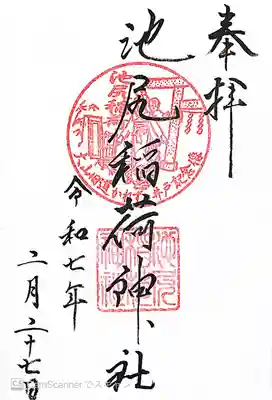 奉拝
池尻稲荷神社
令和七年
二月二十七日
CamScanner でスキャン